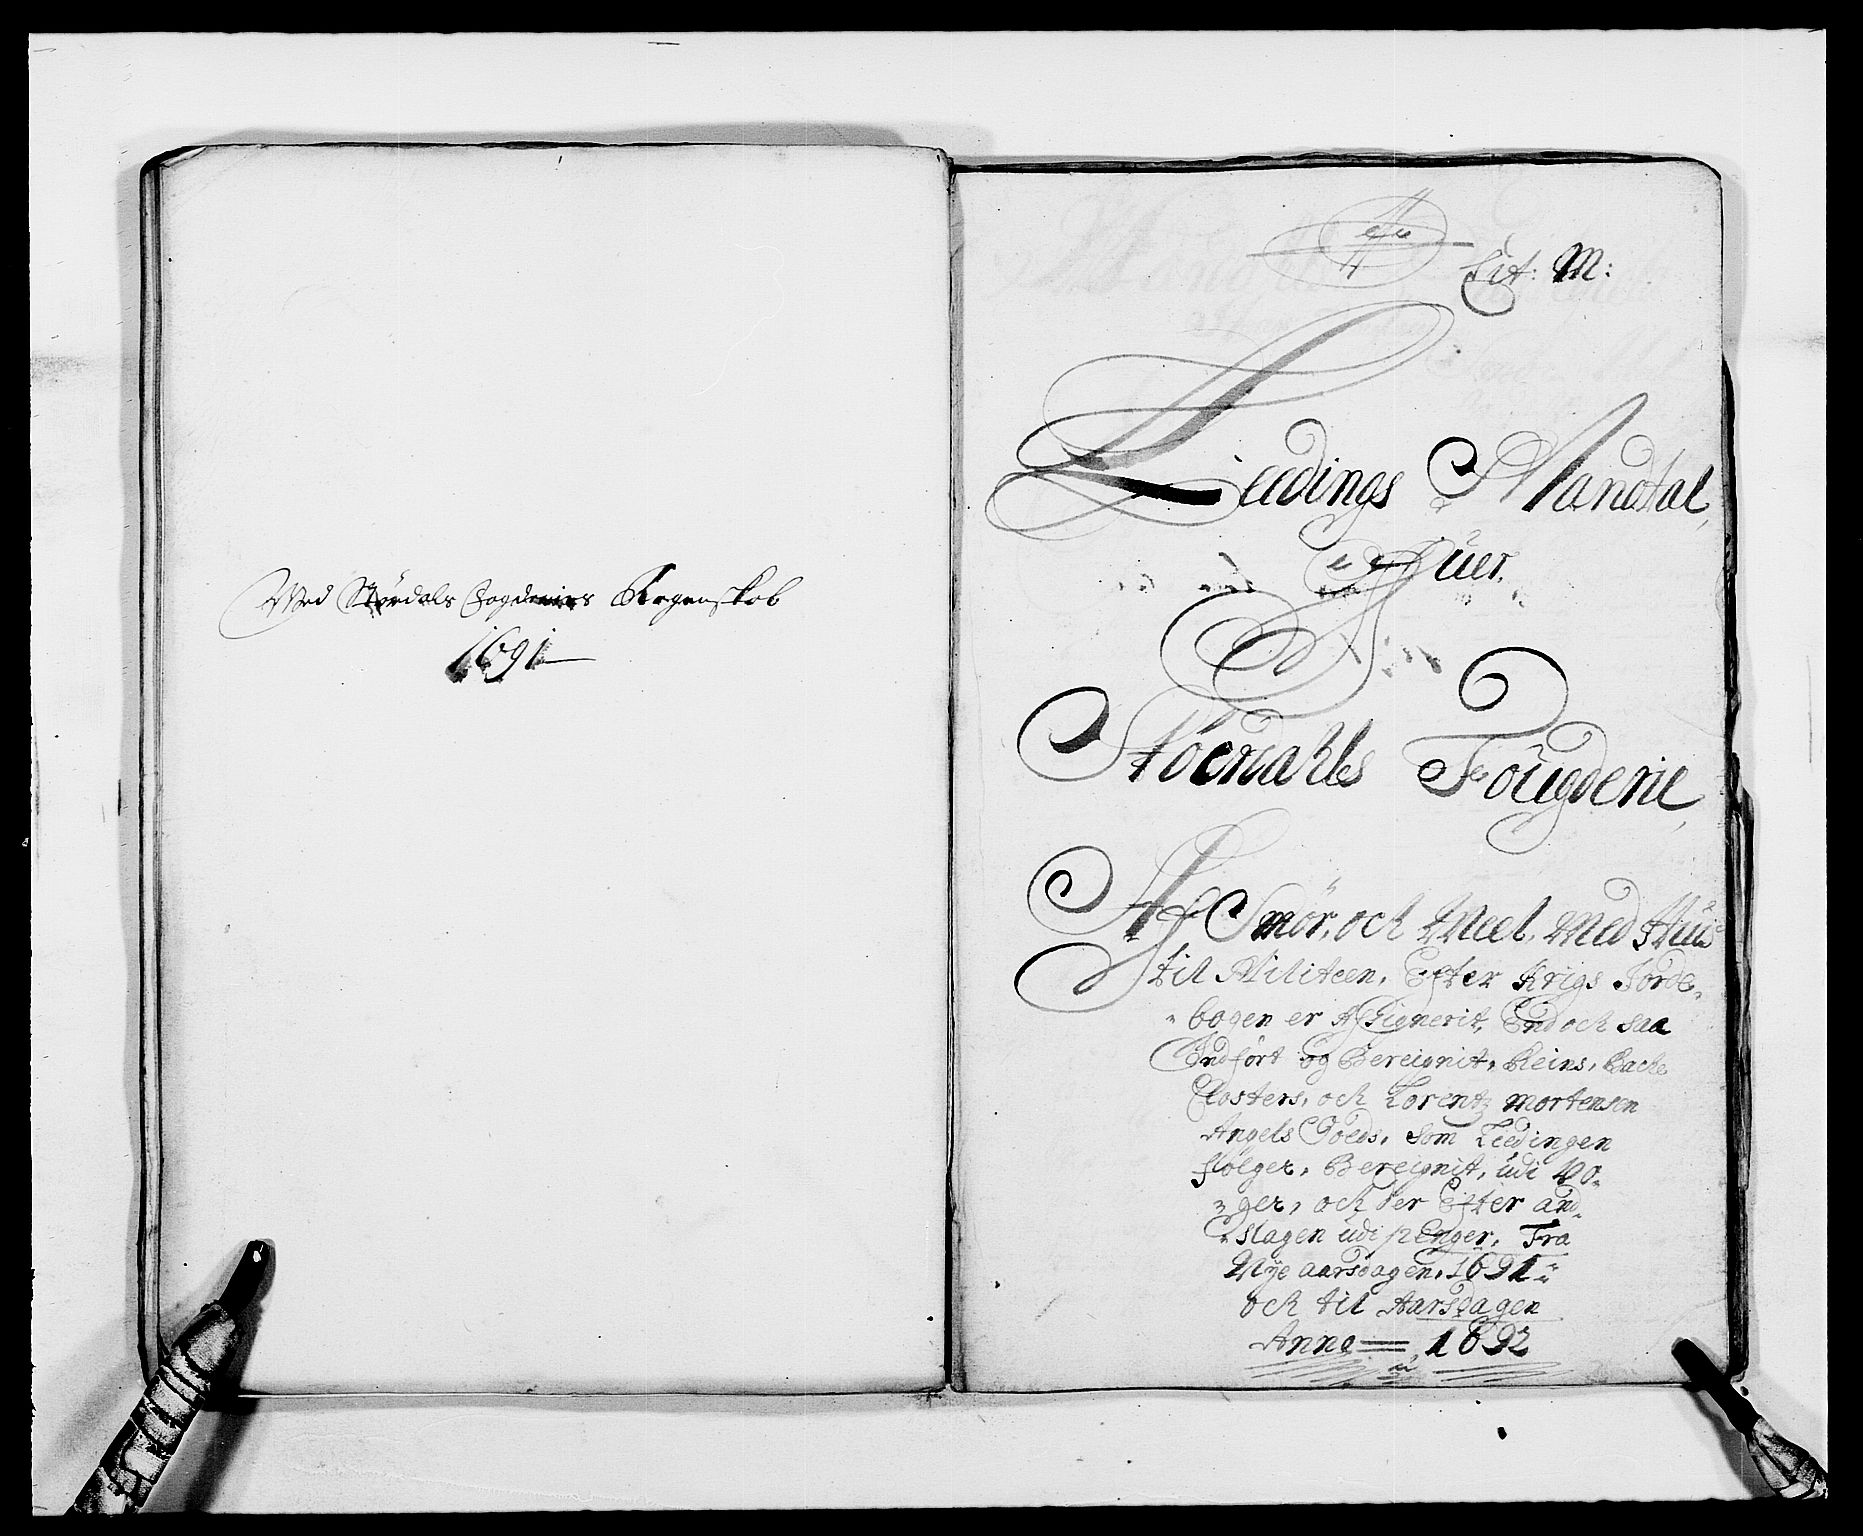 Med Størdals Fogderies Regenskab
1691
Lit: M:
Leedings Mandtal,
Ofüer
Støerdahls Foügderie,
Af Smör, och Meel, Med Hüus
til Militeen, Efter Krigs Jorde-
bogen er Assignerit, End och saa
Indført og Bereignit, Reins, Bache
Closters, och Lorentz Mortensen
Angels Goeds, som Leedingen
følger, Bereignit, üdi Vo-
ger, och der Efter and-
slagen üdi penger, Fra
Nÿe aarsdagen, 1691
och til Aarsdagen
Anno 1692